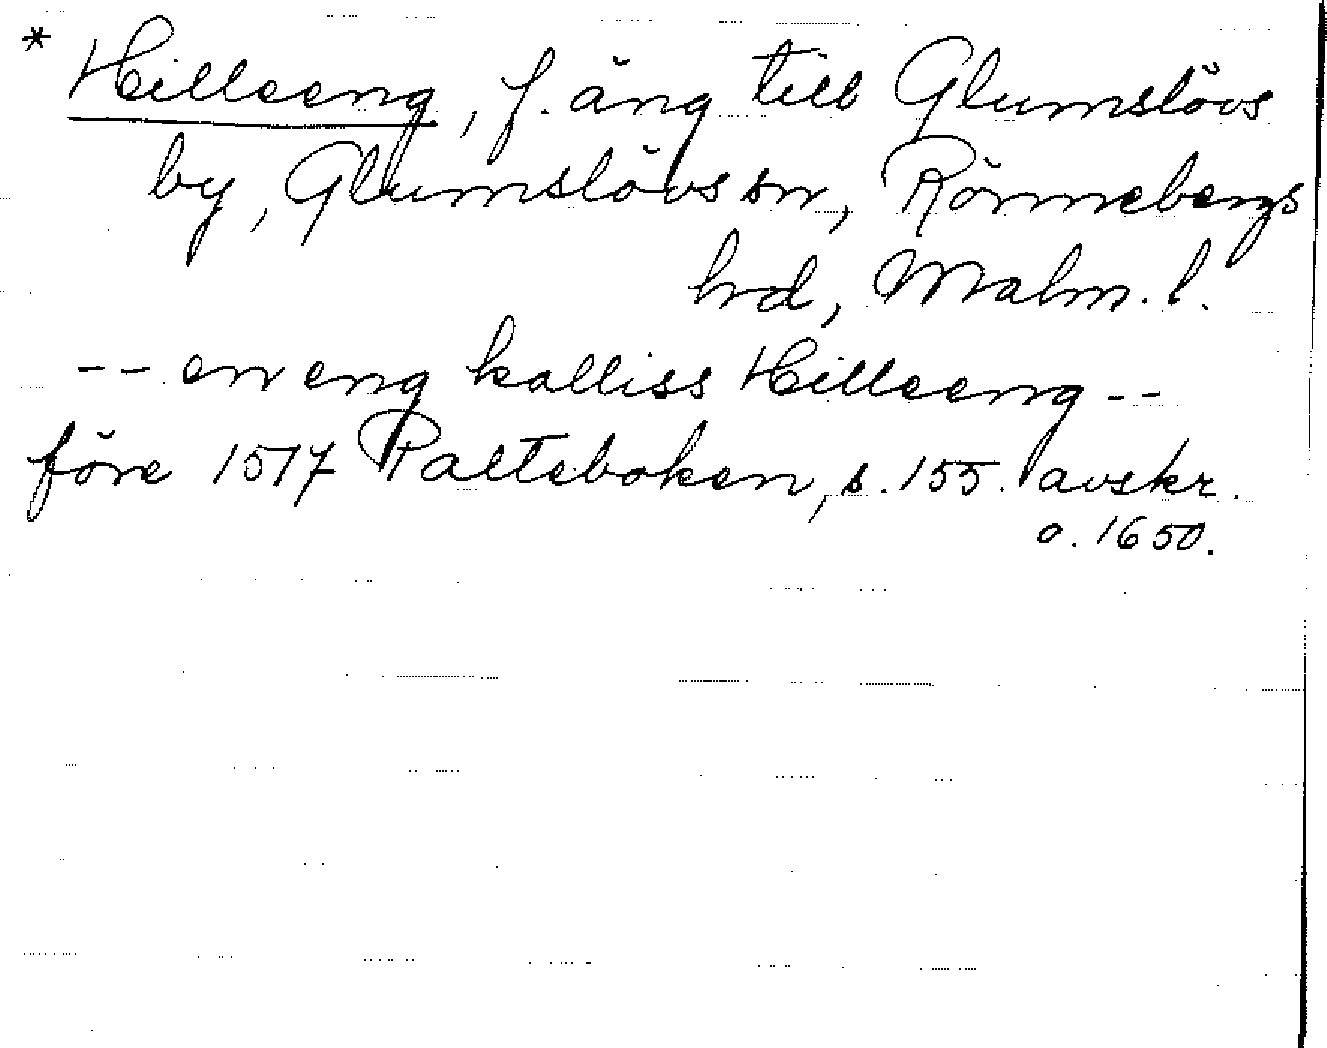 * Hilleeng, f. äng till Glumslövs
by, Glumslövs sn, Rönnebergs
hd, Malm. l.
-- en eng kalliss Hilleeng --
före 1517 Palteboken, s. 155. avskr.
o. 1650.